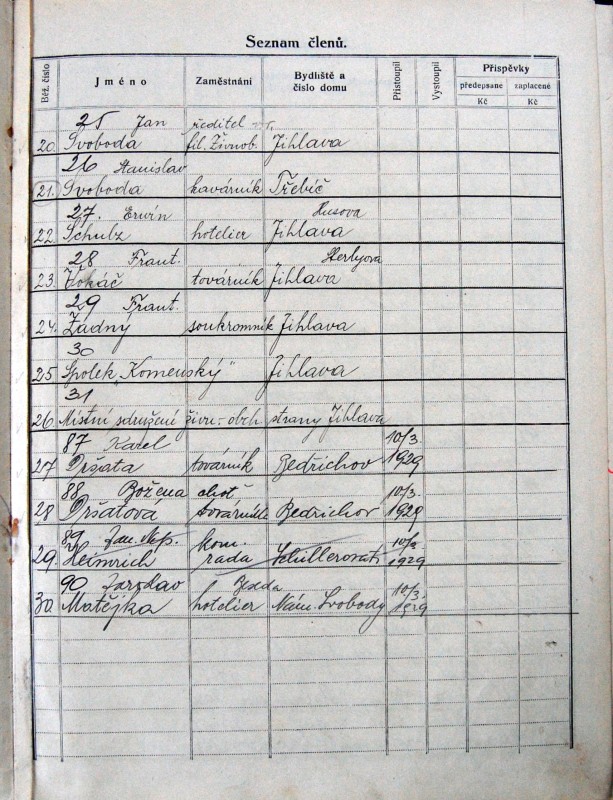 Seznam členů.
Běž. číslo Jméno Zaměstnání Bydliště a číslo domu Přistoupil Vystoupil Příspěvky
předepsané zaplacené
Kč Kč
25 Jan ředitel
20. Svoboda fil. Živnob. Jihlava
26 Stanislav
21. Svoboda kavárník Třebíč
27. Erwin Husova
22. Schulz hotelier Jihlava
28 Frant.
23. továrník Jihlava
29 Frant.
24. Žádný soukromník Jihlava
30
25 Spolek „Komenský" Jihlava
31
26. Místní sdružení živn.-obch. strany Jihlava
87 Karel 10/3.
27. Dršata továrník Bedřichov 1929
88 Božena choť 10/3.
28 Dršatová Bedřichov 1929
89 kom. 10/3
29. Heinrich rada 1929
90 Jaroslav 10/3.
30. Matějka hotelier Nám. Svobody 1929